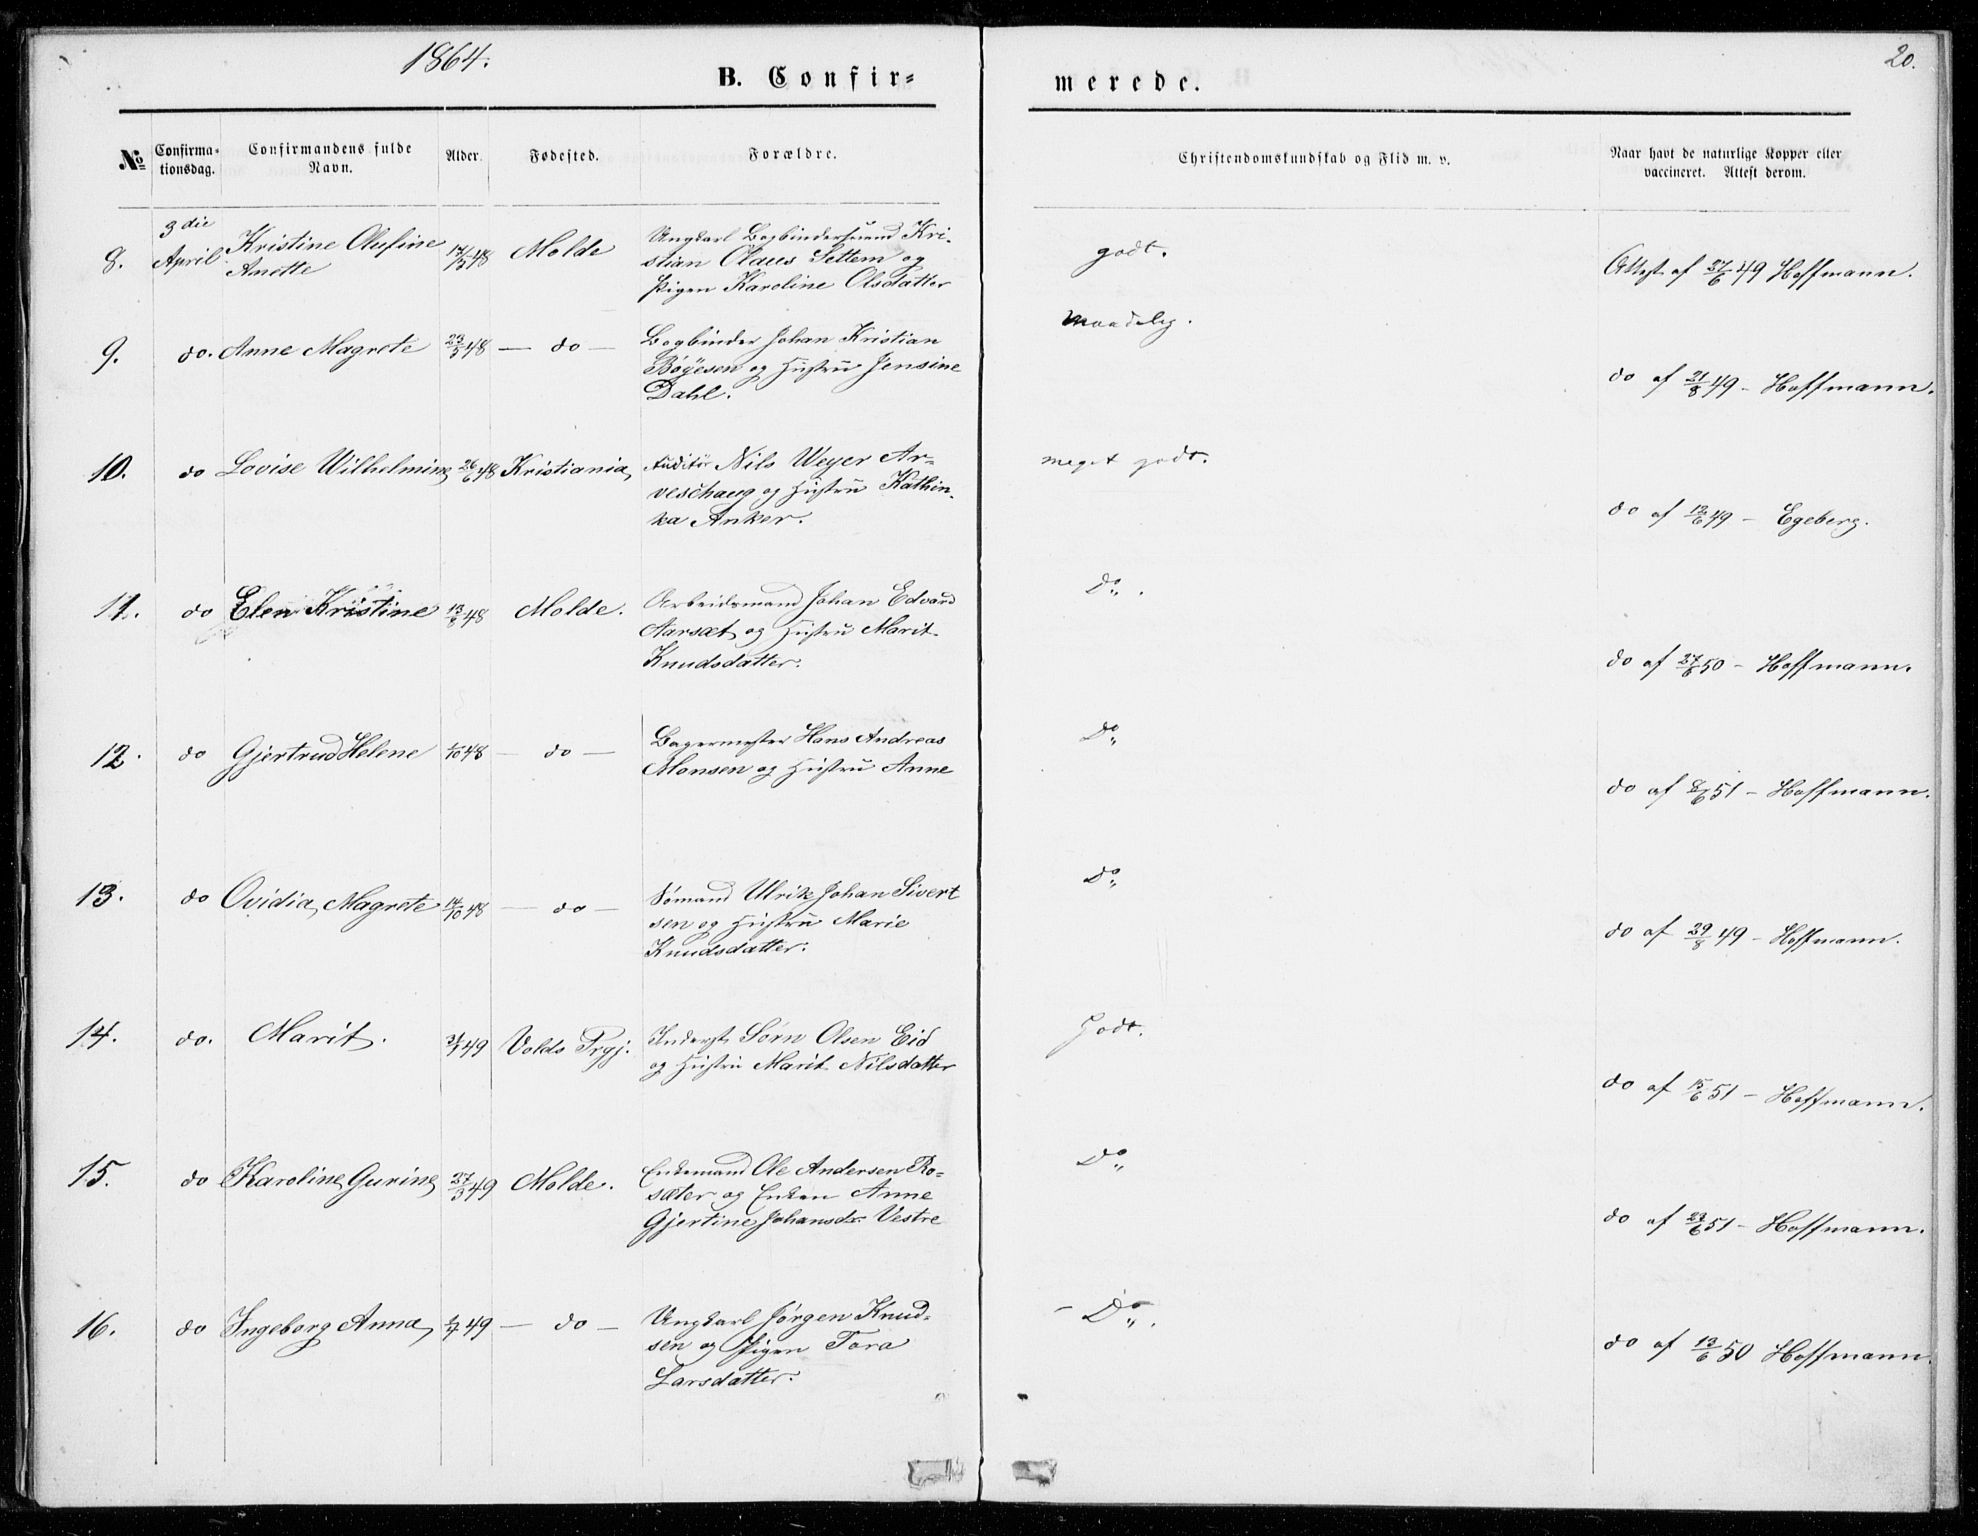 1864.
20.
B. Confir=
merede.
No
Confirma=
tionsdag.
Confirmandens fulde
Navn.
Alder.
Fødested.
Forældre.
Christendomskundskab og Flid m. v.
Naar havt de naturlige Kopper eller
vaccineret. Attest derom.
8.
3die
April
Kristine Olufine
Anette
48
Molde
Ungkarl Bogbindersvend Kri-
stian Olaus Settem og
Pigen Karoline Olsdatter
godt.
Attest af 27/6 49 Hoffmann.
9.
do.
Anne Magrete
23/5 48
— do —
Bogbinder Johan Kristian
Bøyesen og Hustru Jensine
Dahl.
Maadelig.
do af 21/8 49 – Hoffmann.
10.
do
Lovise Wilhelmine
26/6 48
Kristiania
Auditør Nils Weyer Ar=
veschaug og Hustru Kathin-
ka Anker.
meget godt.
do af 12/6 49 – Egeberg.
11.
do
Elen Kristine
13/8 48
Molde.
Arbeidsmand Johan Edvard
Aarsæt og Hustru Marit
Knudsdatter.
Do.
do af 27/6 50 – Hoffmann.
12.
do
Gjertrud Helene
48
— do —
Bagermester Hans Andreas
Monsen og Hustru Anne
Do
do af 51 – Hoffmann.
13.
do
Ovidia Magrete
14/10 48
— do —
Sømand Ulrik Johan Sivert
sen og Hustru Marie
Knudsdatter.
Do
do af 29/8 49 – Hoffmann.
14.
do.
Marit.
49
Volds Prgj.
Inderst Sørn Olsen Eid
og Hustru Marit Nilsdatter
Godt.
do af 15/6 51 – Hoffmann.
15.
do
Karoline Gurine
27/3 49
Molde.
Enkemand Ole Andersen Ro-
sæter og Enken Anne
Gjertine Johansdr. Vestre
Do
do af 51 – Hoffmann.
16.
do
Ingeborg Anna
49
— do —
Ungkarl Jørgen Knud-
sen og Pigen Tora
Larsdatter.
– Do.
do af 13/6 50 Hoffmann.